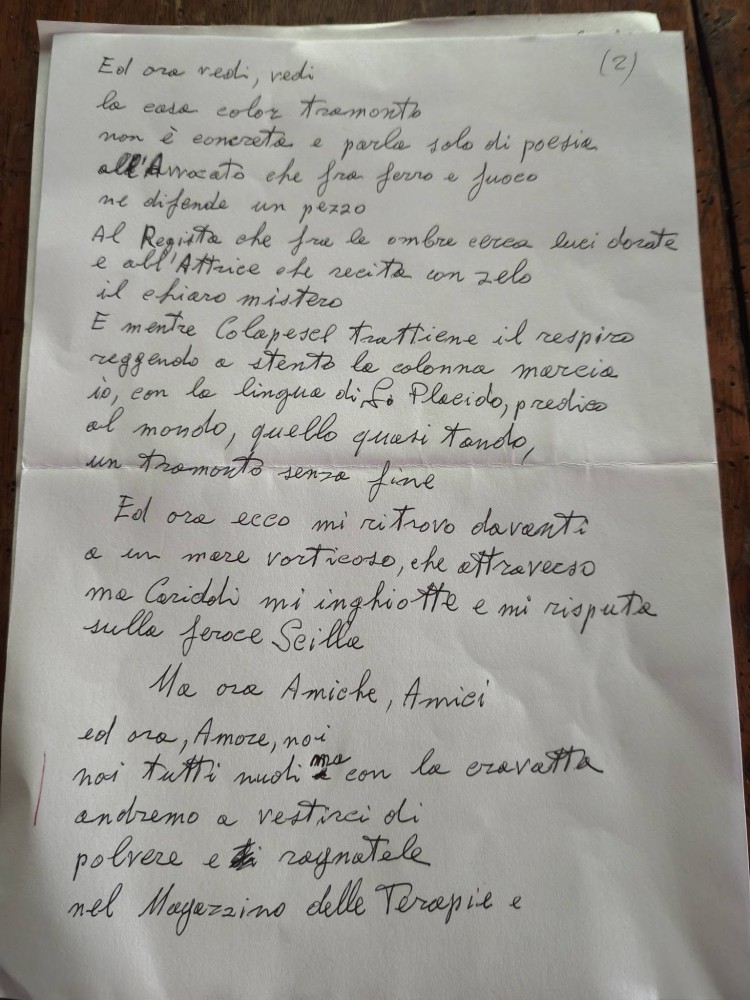 (2)
Ed ora vedi, vedi
la casa color tramonto
non è concreta e parla solo di poesia
all'Avvocato che fra ferro e fuoco
ne difende un pezzo
Al Regista che fra le ombre cerca luci dorate
e all'Attrice che recita con zelo
il chiaro mistero
E mentre Colapesce trattiene il respiro
reggendo a stento la colonna marcia
io, con la lingua di Lo Placido, predico
al mondo, quello quasi tondo,
un tramonto senza fine
Ed ora ecco mi ritrovo davanti
a un mare vorticoso, che attraverso
ma Cariddi mi inghiotte e mi risputa
sulla feroce Scilla
Ma ora Amiche, Amici
ed ora, Amore, noi
noi tutti nudi ma con la cravatta
andremo a vestirci di
polvere e ragnatele
nel Magazzino delle Terapie e